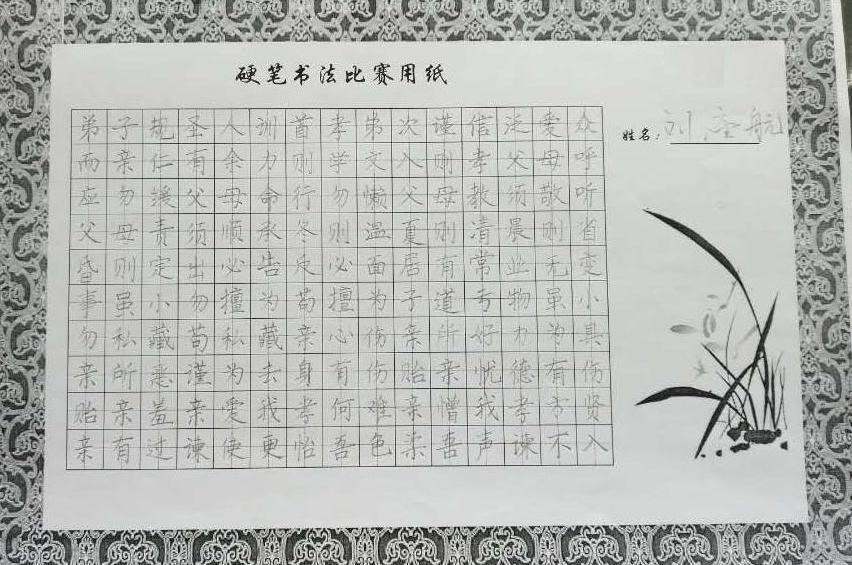 硬笔书法比赛用纸
姓名：刘航
弟子规圣人训首孝弟次谨信泛爱众
而亲仁有余力则学文入则孝父母呼
应勿缓父母命行勿懒父母教须敬听
父母责须顺承冬则温夏则清晨则省
昏则定出必告反必面居有常业无变
事虽小勿擅为苟擅为子道亏物虽小
勿私藏苟私藏亲心伤亲所好力为具
亲所恶谨为去身有伤贻亲忧德有伤
贻亲羞亲爱我孝何难亲憎我孝方贤
亲有过谏使更怡吾色柔吾声谏不入